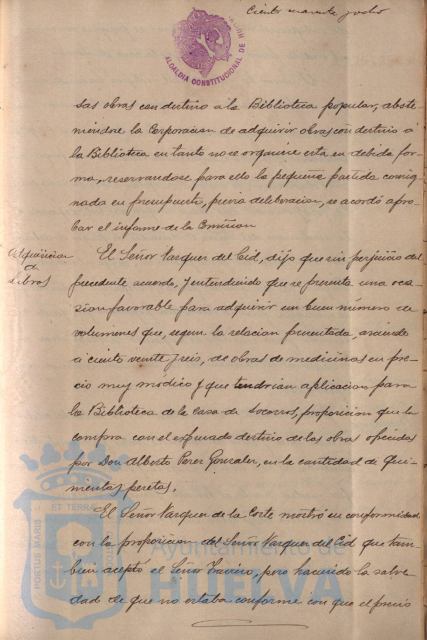 Ciento noventa y ocho
ALCALDIA CONSTITUCIONAL DE HUELVA
sas obras con destino á la Biblioteca popular, abste-
niéndose la Corporacion de adquirir obras con destino á
la Biblioteca en tanto no se organice esta en debida for-
ma, reservandose para ello la pequeña partida consig-
nada en presupuesto, previa deliberacion, se acordó apro-
bar el informe de la Comision
Adquisicion
de
Libros
El Señor Vazquez del Cid, dijo que sin perjuicio del
precedente acuerdo, y entendiendo que se presenta una oca-
sion favorable para adquirir un buen número de
volumenes que, segun la relacion presentada, asciende
a ciento veinte y seis, de obras de medicinas en pre-
cio muy módico y que tendrian aplicacion para
la Biblioteca de la Casa de Socorros, proposicion que la
compra con el expresado destino de las obras ofrecidas
por Don Alberto Perez Gonzalez, en la cantidad de qui-
nientas pesetas.
El Señor Vazquez de la Corte mostró su conformidad
con la proposicion del Señor Vazquez del Cid que tam-
bien aceptó el Señor Traviño, pero haciendo la salve-
dad de que no estaba conforme con que el precio
PORTUS MARIS ET TERRAE
Ayuntamiento de
HUELVA